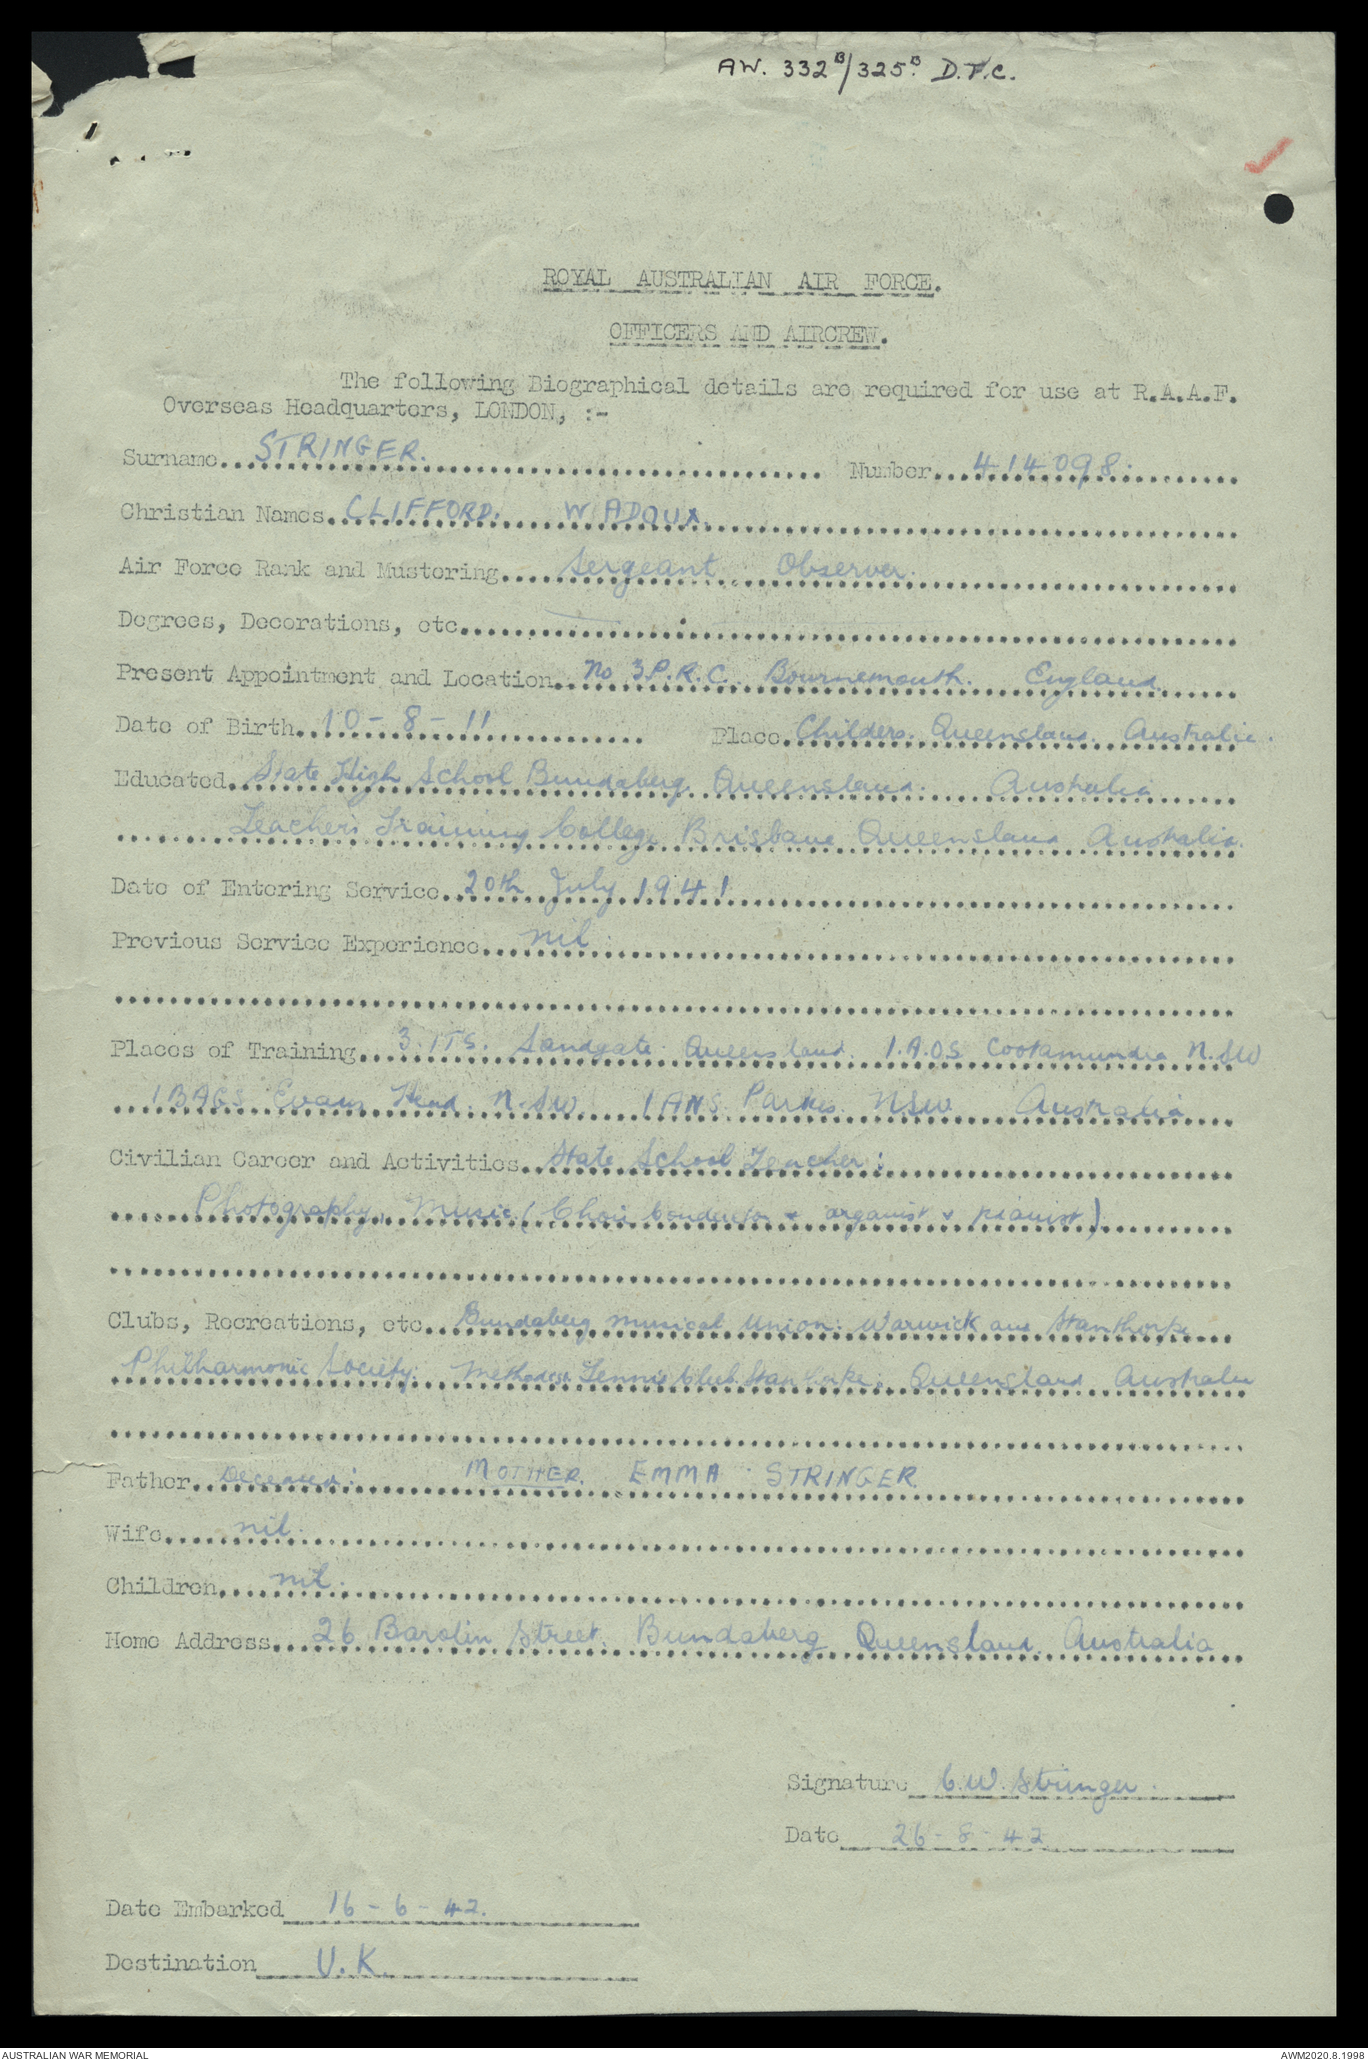 AW. 332B/325B. D.F.C.
ROYAL AUSTRALIAN AIR FORCE.
OFFICERS AND AIRCREW.
The following Biographical details are required for use at R.A.A.F.
Overseas Headquarters, LONDON, :-
Surname STRINGER. Number 414098.
Christian Names CLIFFORD. WADOUX.
Air Force Rank and Mustering Sergeant Observer.
Degrees, Decorations, etc. —
Present Appointment and Location No 3 P.R.C. Bournemouth. England.
Date of Birth 10-8-11 Place Childers. Queensland. Australia.
Educated State High School Bundaberg Queensland. Australia
Teachers Training College Brisbane Queensland Australia.
Date of Entering Service 20th July 1941
Previous Service Experience nil.
Places of Training 3. ITS. Sandgate Queensland. 1.A.O.S Cootamundra N.SW
1 BAGS Evans Head. N.SW 1 ANS Parkes. NSW Australia
Civilian Career and Activities State School Teacher:
Photography, Music (Choir Conductor & organist & pianist)
Clubs, Recreations, etc. Bundaberg Musical Union: Warwick and Stanthorpe
Philharmonic Society. Methodist Tennis Club. Stanthorpe. Queensland Australia
Father Deceased: MOTHER. EMMA STRINGER.
Wife nil.
Children nil.
Home Address 26 Barolin Street. Bundaberg Queensland. Australia
Signature C.W. Stringer.
Date 26-8-42
Date Embarked 16-6-42.
Destination U.K.
AUSTRALIAN WAR MEMORIAL AWM2020.8.1998